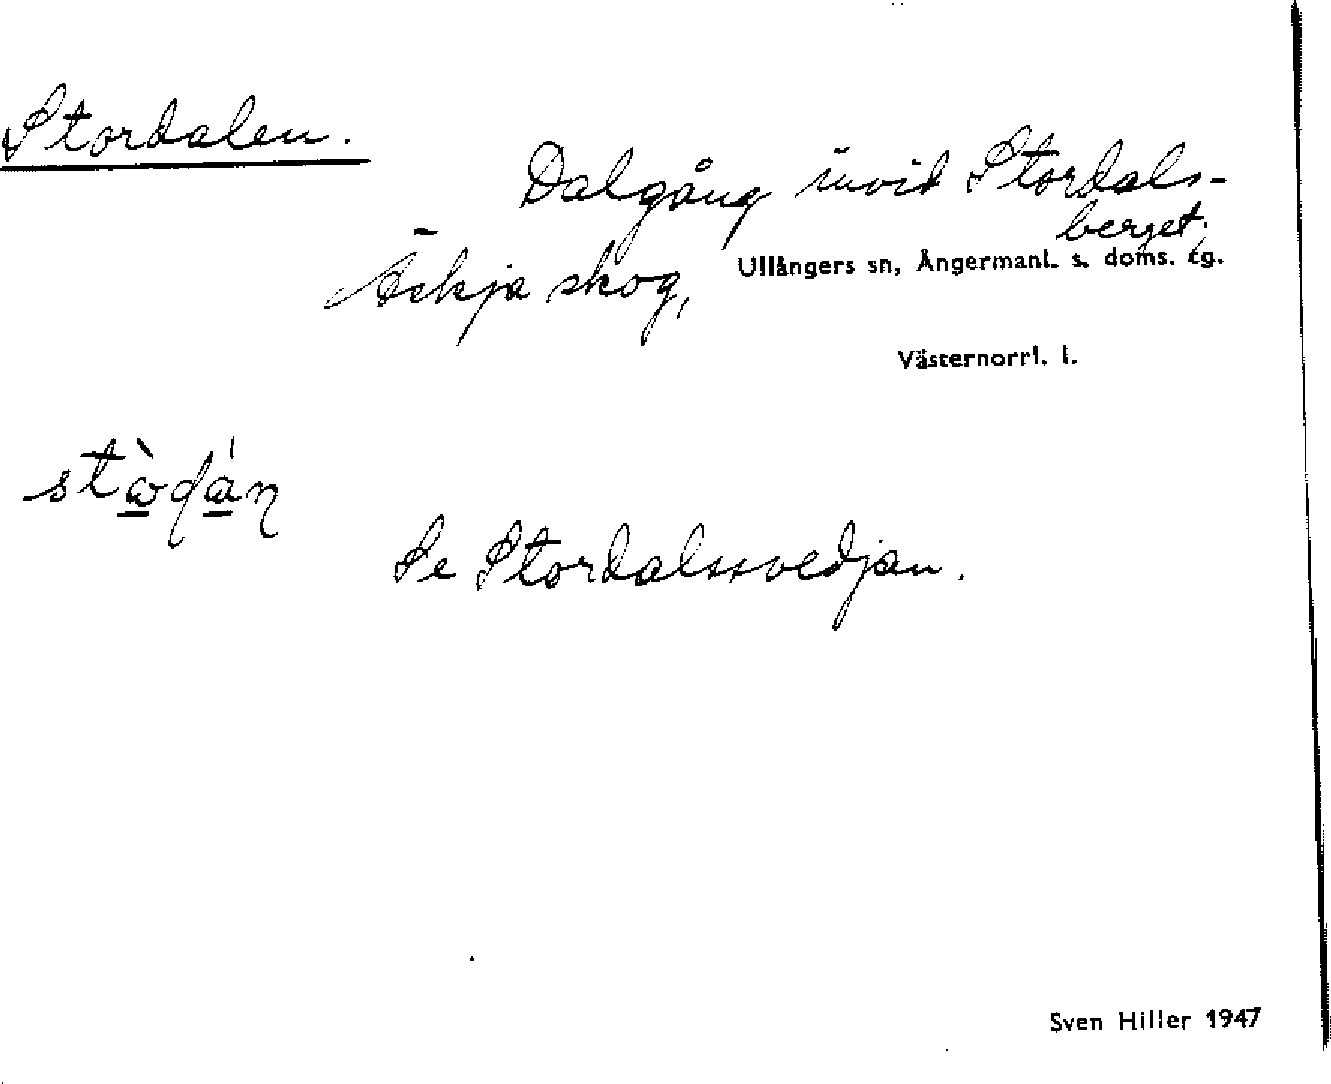 Stordalen.
Dalgång invid Stordals-
berget,
Äckja skog,
Ullångers sn, Ångermanl. s. doms. tg.
Västernorrl. l.
Se Stordalssvedjan.
Sven Hiller 1947